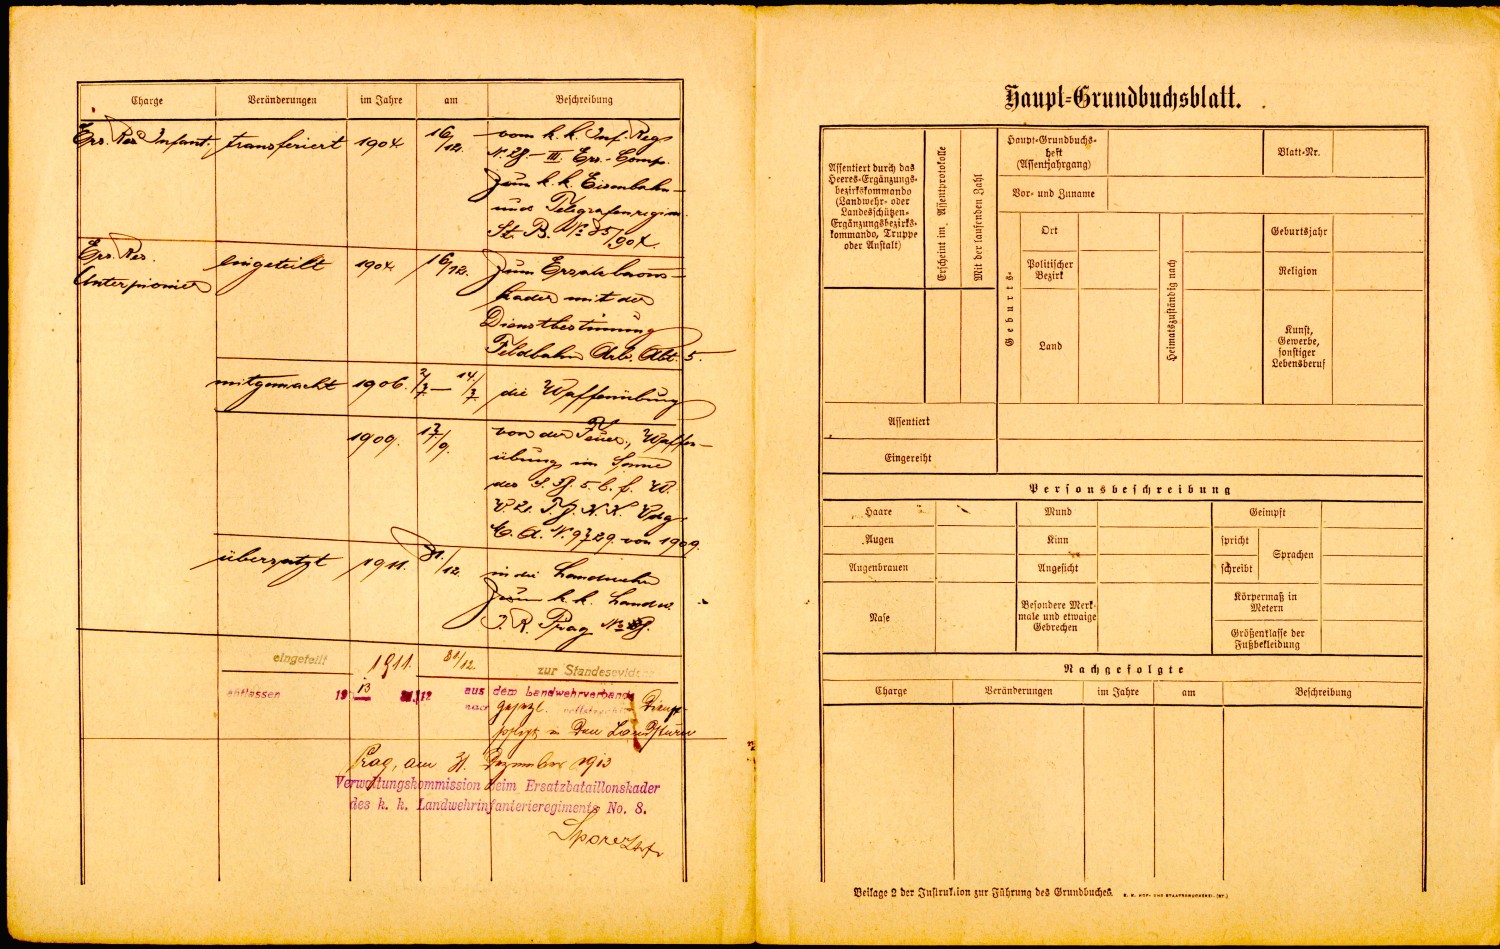 Charge Veränderungen im Jahre am Beschreibung
Ers. Res. Infant. transferiert 1904 16/12. vom k. k. Inf. Reg.
III. Ers. Comp.
zum k. k. Eisenbahn-
und Telegrafenregim.
St. B. № 85/904.
Ers. Res. Unterpionier eingeteilt 1904 16/12. zum Ersatzbaons-
kader mit der
Dienstbestimmung
Feldbahn Arb. Abt. 5.
mitgemacht 1906. die Waffenübung
1909. von der Waffen-
übung im Sinne
des
von 1909.
übersetzt 1911. 31./12. in die Landwehr
zum k. k. Landw.
I. R. Prag № 8.
eingeteilt 1911. 31/12. zur Standesevidenz
entlassen 1913 31.12 aus dem Landwehrverbande
nach gesetzl. vollstreckter Dienst-
pflicht in den Landsturm
Prag, am 31. Dezember 1913
Verwaltungskommission beim Ersatzbataillonskader
des k. k. Landwehrinfanterieregiments No. 8.
Haupt-Grundbuchsblatt.
Assentiert durch das
Heeres-Ergänzungs-
bezirkskommando
(Landwehr- oder
Landesschützen-
Ergänzungsbezirks-
kommando, Truppe
oder Anstalt)
Erscheint im Assentprotokolle
Mit der laufenden Zahl
Haupt-Grundbuchs-
heft
(Assentjahrgang)
Blatt-Nr.
Vor- und Zuname
Geburts-
Ort
Politischer
Bezirk
Land
Heimatszuständig nach
Geburtsjahr
Religion
Kunst,
Gewerbe,
sonstiger
Lebensberuf
Assentiert
Eingereiht
Personsbeschreibung
Haare Mund Geimpft
Augen Kinn spricht Sprachen
Augenbrauen Angesicht schreibt
Nase
Besondere Merk-
male und etwaige
Gebrechen
Körpermaß in
Metern
Größenklasse der
Fußbekleidung
Nachgefolgte
Charge Veränderungen im Jahre am Beschreibung
Beilage 2 der Instruktion zur Führung des Grundbuches. K. K. HOF- UND STAATSDRUCKEREI.